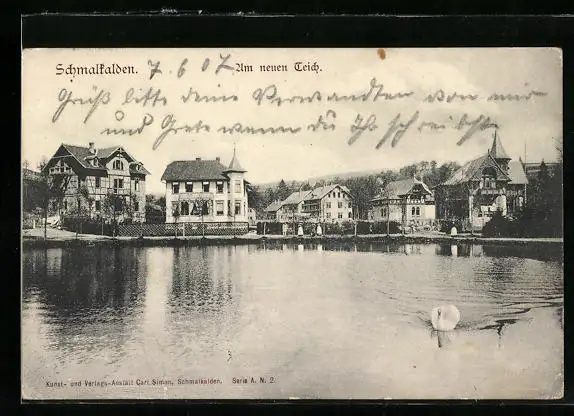 Schmalkalden. 7. 6. 07 Am neuen Teich.
Grüß bitte deine Verwandten von mir
und Grete wenn du Ihr schreibst
Kunst- und Verlags-Anstalt Carl Simon, Schmalkalden. Serie A. N. 2.